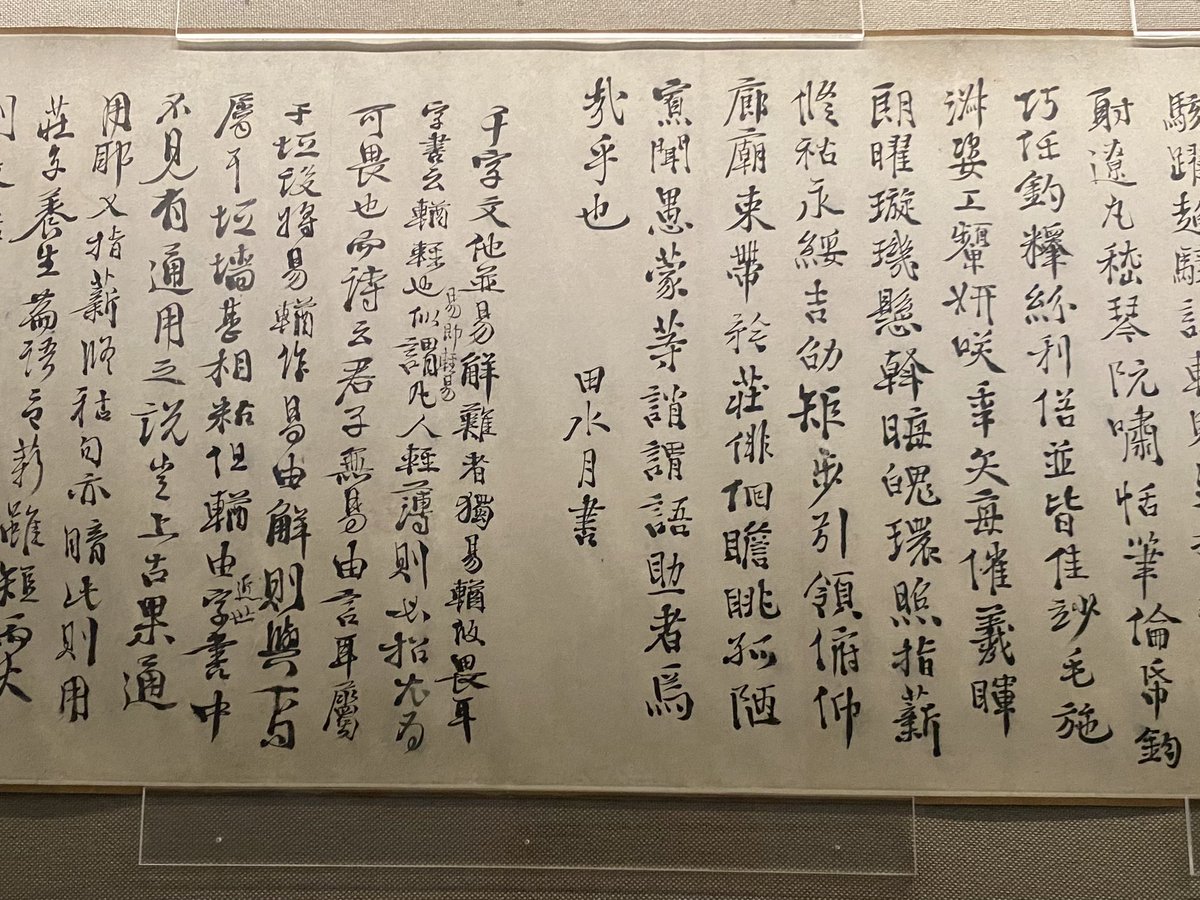 駭躍超驤誅斬賊
射遼丸嵇琴阮嘯恬筆倫帋鈞
巧任釣釋紛利俗並皆佳妙毛施
淑姿工顰妍咲年矢每催羲暉
朗曜璇璣懸斡晦魄環照指薪
脩祜永綏吉劭矩步引領俯仰
廊廟束帶矜莊俳佪瞻眺孤陋
寡聞愚蒙等誚謂語助者焉
哉乎也
田水月書
千字文他並易解難者獨易輶攸畏耳
字書云輶輕也似謂凡人輕薄則必招尤為
易即輕易
可畏也而詩云君子無易由言耳屬
于垣設將易輶作易由解則與下句
屬耳垣墻甚相粘但輶由字書中
近世
不見有通用之說豈上古果通
用耶又指薪脩祜句亦暗此則用
莊子養生篇語言薪雖短而火